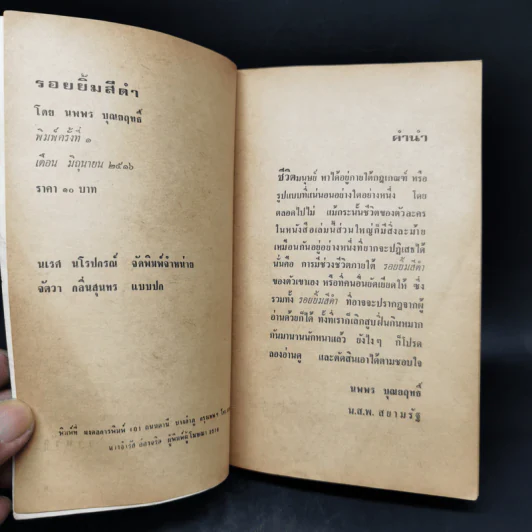 รอยยิ้มสีดำ
โดย นพพร บุณยฤทธิ์
พิมพ์ครั้งที่ ๑
เดือน มิถุนายน ๒๕๑๖
ราคา ๑๐ บาท
นเรศ นโรปกรณ์ จัดพิมพ์จำหน่าย
จัตวา กลิ่นสุนทร แบบปก
พิมพ์ที่
คำนำ
ชีวิตมนุษย์ หาได้อยู่ภายใต้กฎเกณฑ์ หรือ
รูปแบบที่แน่นอนอย่างใดอย่างหนึ่ง โดย
ตลอดไปไม่ แม้กระนั้นชีวิตของตัวละคร
ในหนังสือเล่มนี้ส่วนใหญ่ก็มีสิ่งละม้าย
เหมือนกันอยู่อย่างหนึ่งที่ยากจะปฏิเสธได้
นั่นคือ การมีช่วงชีวิตภายใต้ รอยยิ้มสีดำ
ของตัวเขาเอง หรือที่คนอื่นยัดเยียดให้ ซึ่ง
รวมทั้ง รอยยิ้มสีดำ ที่อาจจะปรากฏจากผู้
อ่านด้วยก็ได้ ทั้งที่เราก็เลิกสูบฝิ่นกินหมาก
กันมานานนักหนาแล้ว ยังไงๆ ก็โปรด
ลองอ่านดู และตัดสินเอาได้ตามชอบใจ
นพพร บุณยฤทธิ์
น.ส.พ. สยามรัฐ